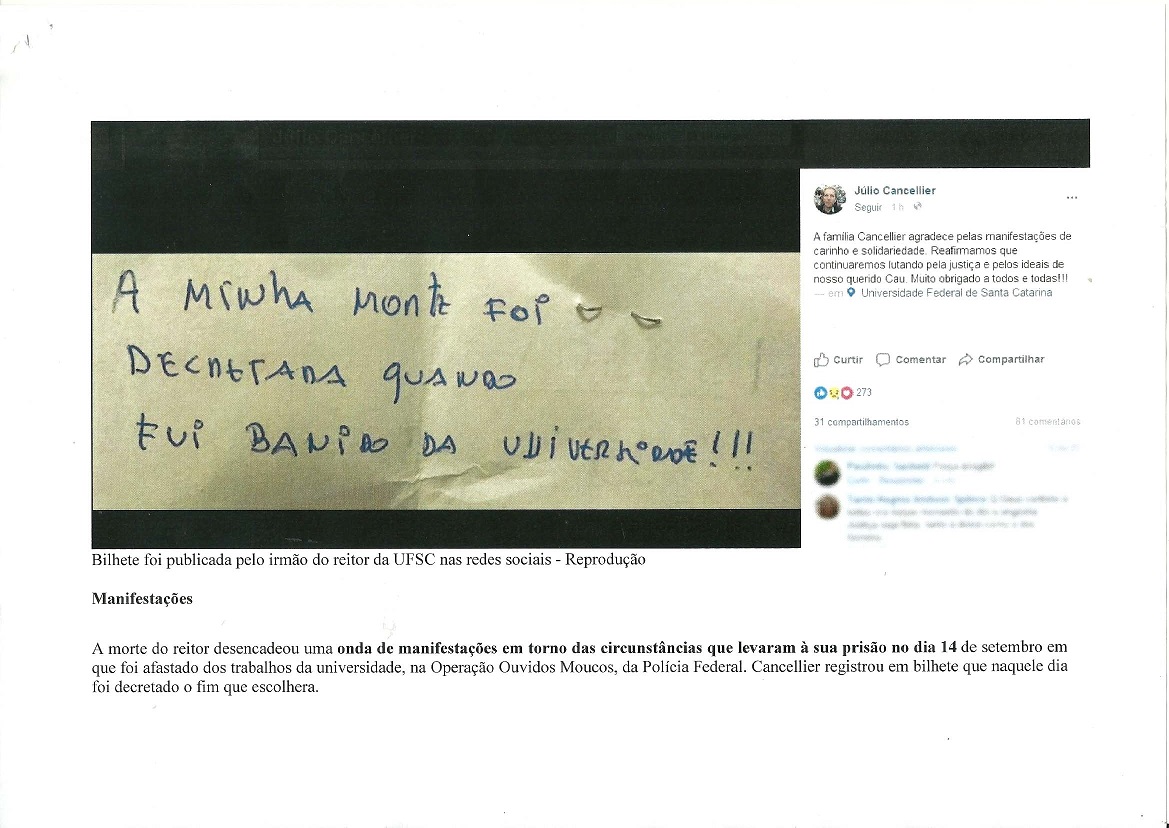 A MINHA MORTE FOI
DECRETADA QUANDO
FUI BANIDO DA UNIVERSIDADE!!!
Júlio Cancellier
Seguir 1 h
...
A família Cancellier agradece pelas manifestações de
carinho e solidariedade. Reafirmamos que
continuaremos lutando pela justiça e pelos ideais de
nosso querido Cau. Muito obrigado a todos e todas!!!
— em Universidade Federal de Santa Catarina
Curtir Comentar Compartilhar
273
31 compartilhamentos 81 comentários
Bilhete foi publicada pelo irmão do reitor da UFSC nas redes sociais - Reprodução
Manifestações
A morte do reitor desencadeou uma onda de manifestações em torno das circunstâncias que levaram à sua prisão no dia 14 de setembro em
que foi afastado dos trabalhos da universidade, na Operação Ouvidos Moucos, da Polícia Federal. Cancellier registrou em bilhete que naquele dia
foi decretado o fim que escolhera.